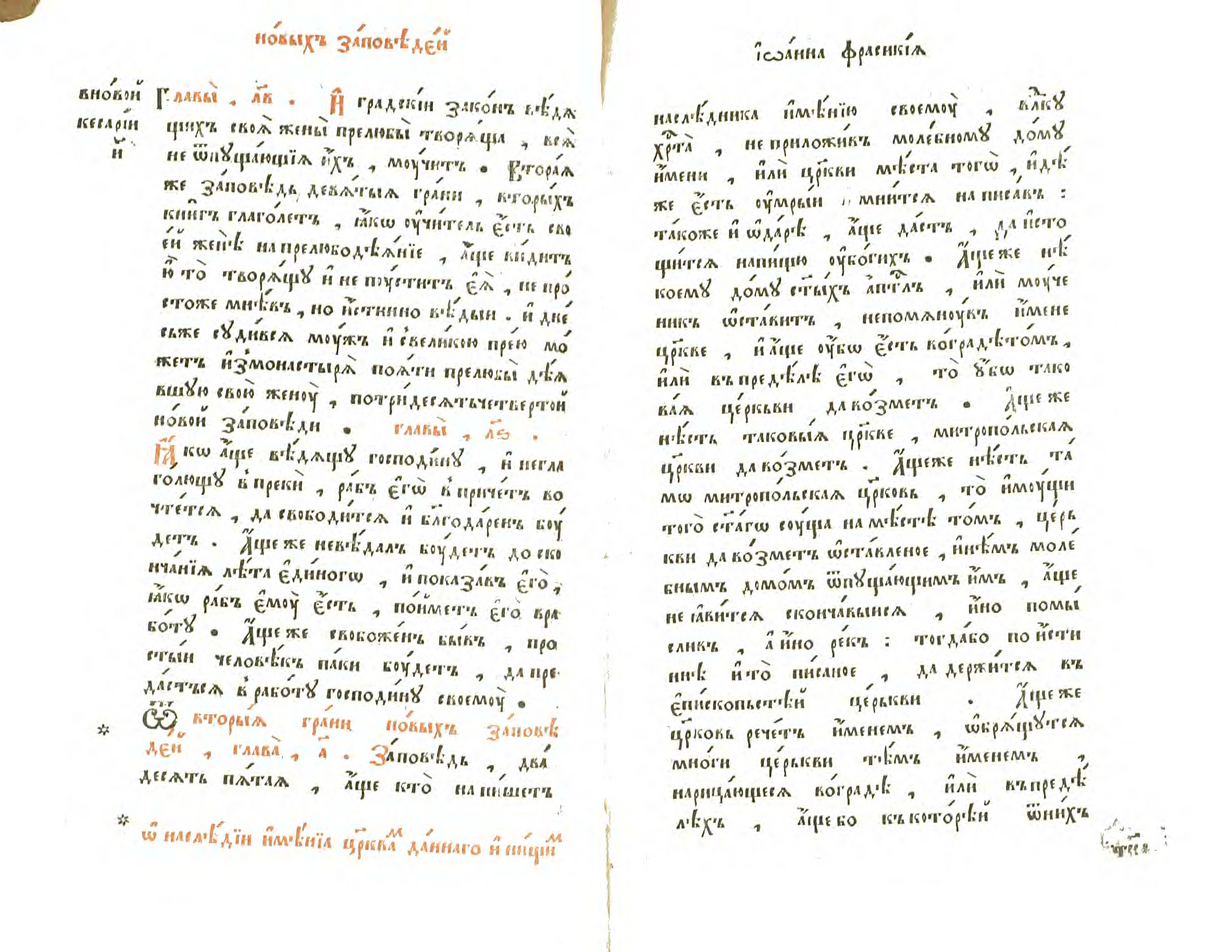 но́выхъ за́повѣде́й
внов́ой
кесарі́й
и҆
Главы̀ , л҃в . И҆ градскі́и зако́нъ вѣ́дѧ
щихъ своѧ̀ жены̀ прелюбы̀ творѧ́ща , всѧ̀
не ѿпуща́ющїѧ и҆́хъ , моу́читъ . Втораѧ
же за́повѣдь девѧ́тыѧ гра́ни , вторы́хъ
кни́гъ глаго́летъ , ꙗ҆́кѡ оучи́тель є҆́сть сво
е́й женѣ̀ на прелюбодѣѧ́нїе , а҆́ще ви́дитъ
ю҆̀ то̀ творѧ́щꙋ и҆ не пꙋ́ститъ є҆ѧ̀ , не про́
стоже мнѣ́въ , но и҆́стинно вѣ́дыи . и҆ дне́
сьже сꙋди́всѧ моу́жъ и҆ с вели́кою пре́ю мо́
жетъ и҆змонастырѧ̀ поѧ́ти прелюбы̀ дѣ́ѧ
вшꙋю свою̀ женоу̀ , потридесѧтьчетвертой
но́вой за́повѣди . главы̀ , л҃ѕ .
Ꙗ҆́кѡ а҆́ще вѣ́дѧщꙋ господи́нꙋ , и҆ негла
го́лющꙋ в пре́ки , ра́бъ є҆гѡ̀ в приче́тъ во
чте́тсѧ , да свободи́тсѧ и҆ бл҃годаре́нъ боу́
детъ . А҆́ще же невѣ́далъ боу́детъ до ско
нча́нїѧ лѣ́та є҆ди́ногѡ , и҆ показа́въ є҆го̀ ,
ꙗ҆́кѡ ра́бъ є҆моу̀ є҆́сть , по́йметъ є҆го̀ вра
бо́тꙋ . А҆́ще же свобоже́нъ бы́въ , про
сты́и человѣ́къ па́ки боу́детъ , да пре
да́стьсѧ в рабо́тꙋ господи́нꙋ своемоу̀ .
Ѿ вторы́ѧ гра́ни но́выхъ за́повѣ
де́й , глава̀ , а҃ . За́повѣдь , два́
десѧть пѧ́таѧ , а҆́ще кто̀ напи́шетъ
ѡ҆ наслѣ́дїи и҆мѣ́нїѧ цр҃квам да́ннаго и҆ ни́щим
і҆ѡа́нна фрасикі́ѧ
наслѣ́дника и҆мѣ́нїю своемоу̀ , вл҃кꙋ
хр҃та̀ , не приложи́въ моле́бномꙋ до́мꙋ
и҆́мени , и҆лѝ цр҃кви мѣ́ста тогѡ̀ , и҆дѣ́
же є҆́сть оу҆мры́и , мни́тсѧ написа́въ :
та́коже и҆ ѡ҆да́рѣ , а҆́ще да́стъ , да и҆сто
щи́тсѧ напи́щю оу҆бо́гихъ . А҆́ще же нѣ́
коемꙋ до́мꙋ ст҃ы́хъ а҆п҃тлъ , и҆лѝ моу́че
никъ ѡ҆ста́витъ , непомѧноу́въ и҆́мене
цр҃кве , и҆ а҆́ще оу҆́бѡ є҆́сть воградѣ́то́мъ ,
и҆лѝ въ предѣ́лѣ є҆гѡ̀ , то̀ ᲂу҆́бѡ тако
ва́ѧ це́рькви да во́зметъ . А҆́ще же
нѣ́сть таковы́ѧ цр҃кве , митропо́льскаѧ
цр҃кви да во́зметъ . А҆́щеже нѣ́сть та́
мѡ митропо́льскаѧ цр҃ковь , то̀ и҆моу́щи
того̀ ст҃а́гѡ соу́ща на мѣ́стѣ то́мъ , це́рь
кви да во́зметъ ѡ҆ста́вленое , и҆нѣ́мъ моле́
бнымъ домо́мъ ѿпуща́ющимъ и҆̀мъ , а҆́ще
не ꙗ҆ви́тсѧ сконча́выисѧ , и҆́но помы́
сливъ , а҆ и҆́но ре́къ : тогда́бо по и҆́сти
ннѣ и҆ то̀ пи́саное , да держи́тсѧ въ
є҆пи́скопьстѣ́й це́рькви . А҆́ще же
цр҃ковь рече́тъ и҆́менемъ , ѡ҆брѧ́щꙋтсѧ
мно́ги це́рькви тѣ́мъ и҆́менемъ ,
нарица́ющесѧ во гра́дѣ , и҆лѝ въ предѣ́
лѣхъ , а҆́ще бо къ кото́рѣй ѿни́хъ